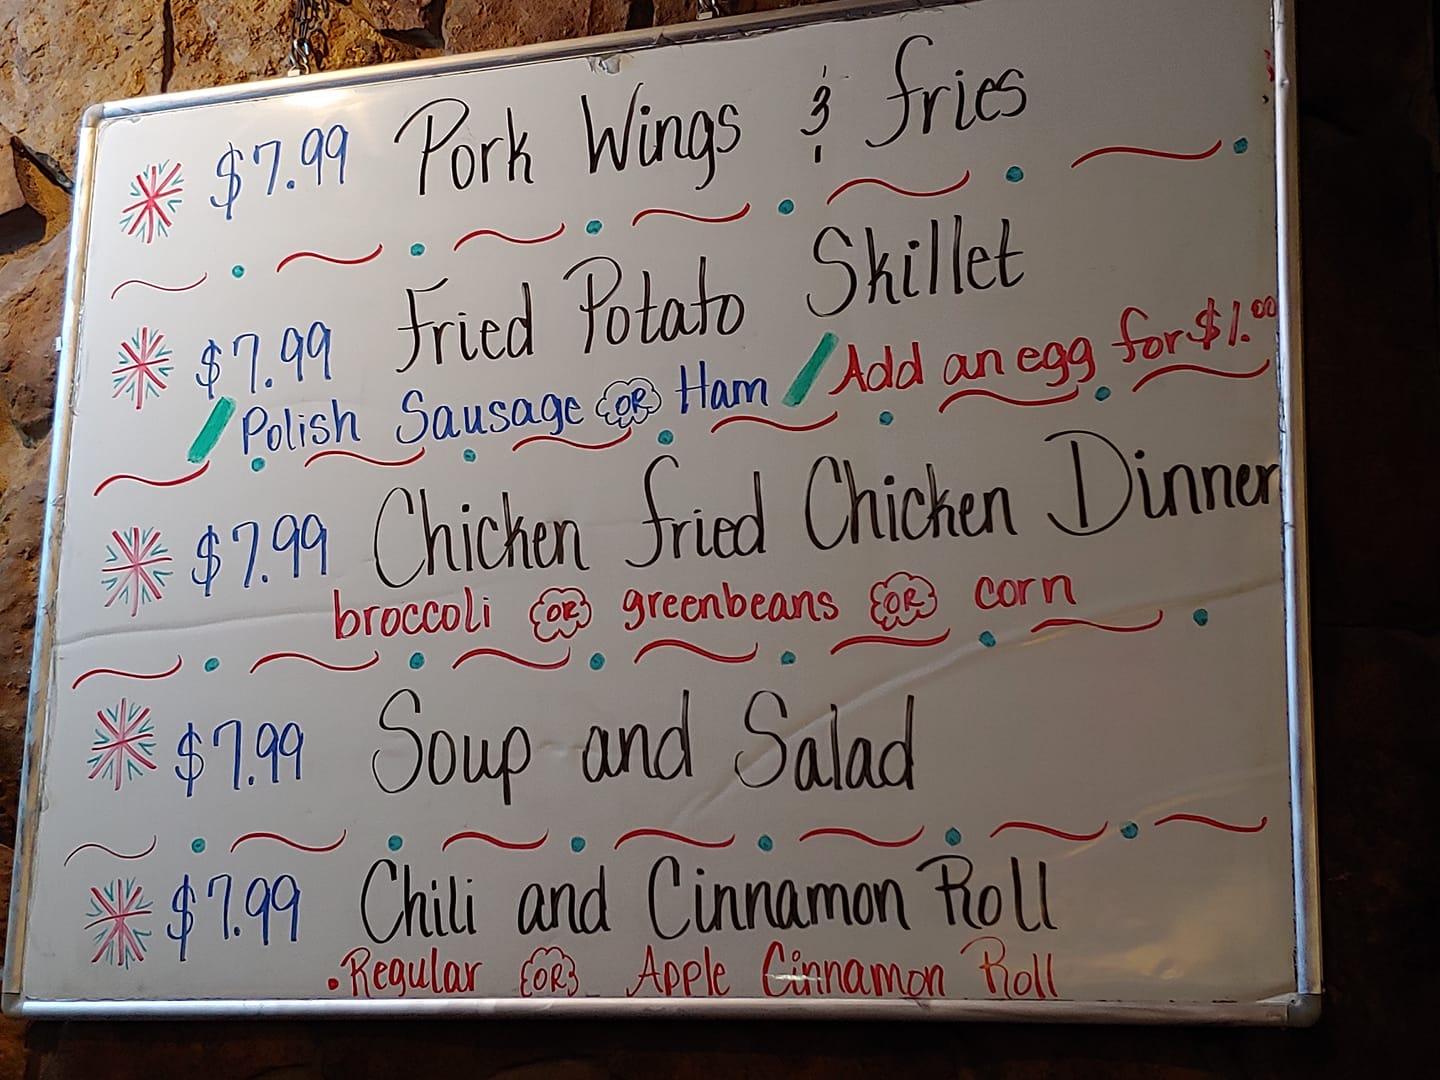 $7.99 Pork Wings & fries
$7.99 Fried Potato Skillet
Polish Sausage OR Ham / Add an egg for $1.00
$7.99 Chicken fried Chicken Dinner
broccoli OR greenbeans OR corn
$7.99 Soup and Salad
$7.99 Chili and Cinnamon Roll
.Regular OR Apple Cinnamon Roll